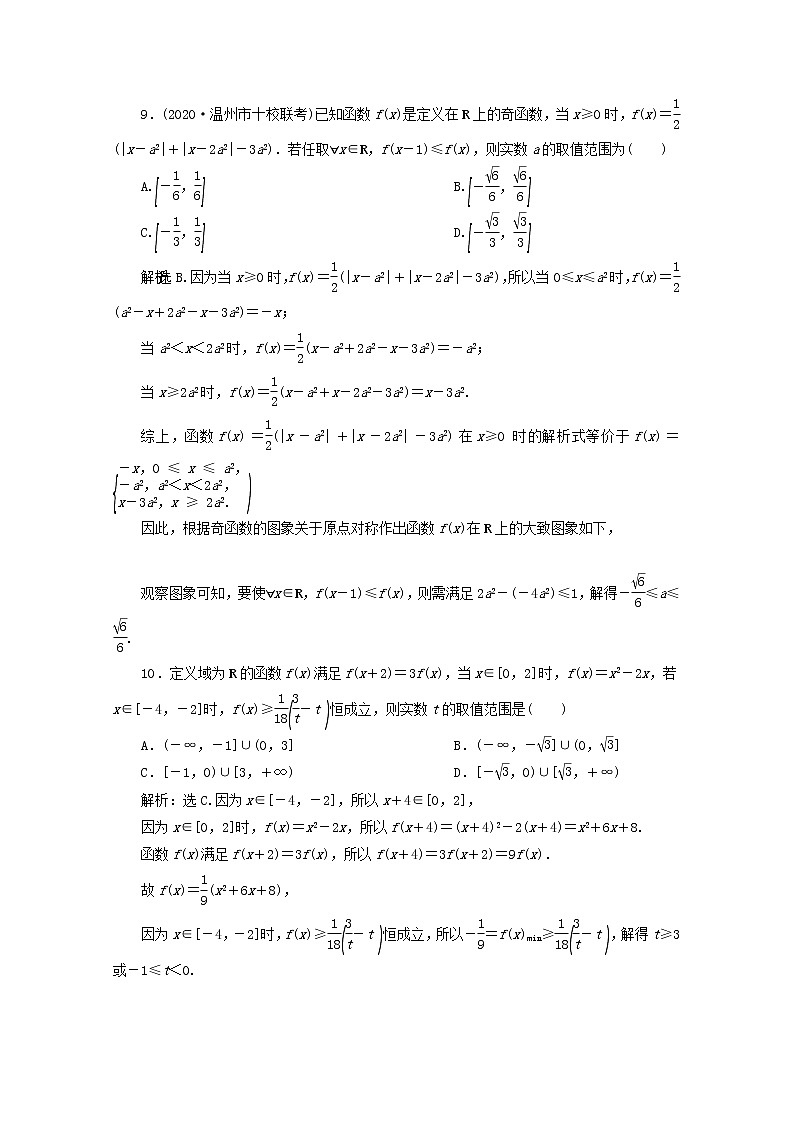 9.(2020·温州市十校联考)已知函数 f(x)是定义在 R 上的奇函数,当 x≥0 时,f(x)=1/2
(|x-a²|+|x-2a²|-3a²).若任取∀x∈R,f(x-1)≤f(x),则实数 a 的取值范围为(  )
A.[-1/6,1/6]  B.[-√6/6,√6/6]
C.[-1/3,1/3]  D.[-√3/3,√3/3]
解析:选 B.因为当 x≥0 时,f(x)=1/2(|x-a²|+|x-2a²|-3a²),所以当 0≤x≤a²时,f(x)=1/2
(a²-x+2a²-x-3a²)=-x;
当 a²<x<2a²时,f(x)=1/2(x-a²+2a²-x-3a²)=-a²;
当 x≥2a²时,f(x)=1/2(x-a²+x-2a²-3a²)=x-3a².
综上,函数 f(x)=1/2(|x-a²|+|x-2a²|-3a²)在 x≥0 时的解析式等价于 f(x)=
{-x,0≤x≤a²,
-a²,a²<x<2a²,
x-3a²,x≥2a².)
因此,根据奇函数的图象关于原点对称作出函数 f(x)在 R 上的大致图象如下,
观察图象可知,要使∀x∈R,f(x-1)≤f(x),则需满足 2a²-(-4a²)≤1,解得-√6/6≤a≤
√6/6.
10.定义域为 R 的函数 f(x)满足 f(x+2)=3f(x),当 x∈[0,2]时,f(x)=x²-2x,若
x∈[-4,-2]时,f(x)≥1/18(3/t-t)恒成立,则实数 t 的取值范围是(  )
A.(-∞,-1]∪(0,3]  B.(-∞,-√3]∪(0,√3]
C.[-1,0)∪[3,+∞)  D.[-√3,0)∪[√3,+∞)
解析:选 C.因为 x∈[-4,-2],所以 x+4∈[0,2],
因为 x∈[0,2]时,f(x)=x²-2x,所以 f(x+4)=(x+4)²-2(x+4)=x²+6x+8.
函数 f(x)满足 f(x+2)=3f(x),所以 f(x+4)=3f(x+2)=9f(x).
故 f(x)=1/9(x²+6x+8),
因为 x∈[-4,-2]时,f(x)≥1/18(3/t-t)恒成立,所以-1/9=f(x)min≥1/18(3/t-t),解得 t≥3
或-1≤t<0.